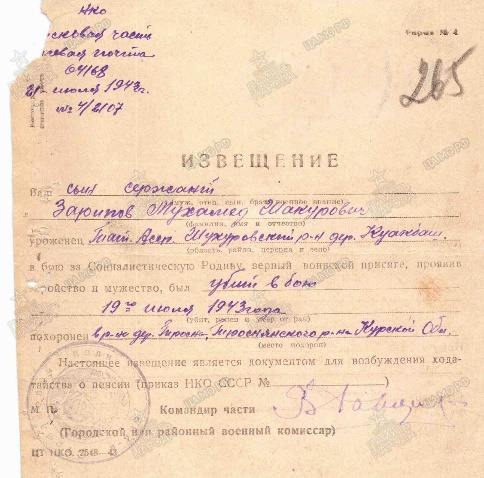 НКО
Форма № 4
сковая часть
евая почта
04168
21 июля 1943г.
№ 4/2107
265
ИЗВЕЩЕНИЕ
Ваш сын сержант
(муж, отец, сын, брат, военное звание)
Зарипов Мухамед Шакурович
(фамилия, имя и отчество)
уроженец Тат. Асср. Шукуровский р-н дер. Куакбаш
(область, район, деревня и село)
в бою за Социалистическую Родину, верный воинской присяге, проявив
геройство и мужество, был убит в бою
19го июля 1943 года
(убит, ранен и умер от ран)
похоронен в р-не дер. Тросна, Троснянского р-на Курской Обл.
(место похорон)
Настоящее извещение является документом для возбуждения хода-
тайства о пенсии (приказ НКО СССР №          )
М П.          Командир части
(Городской или районный военный комиссар)
ЦТ НКО. 2548—43